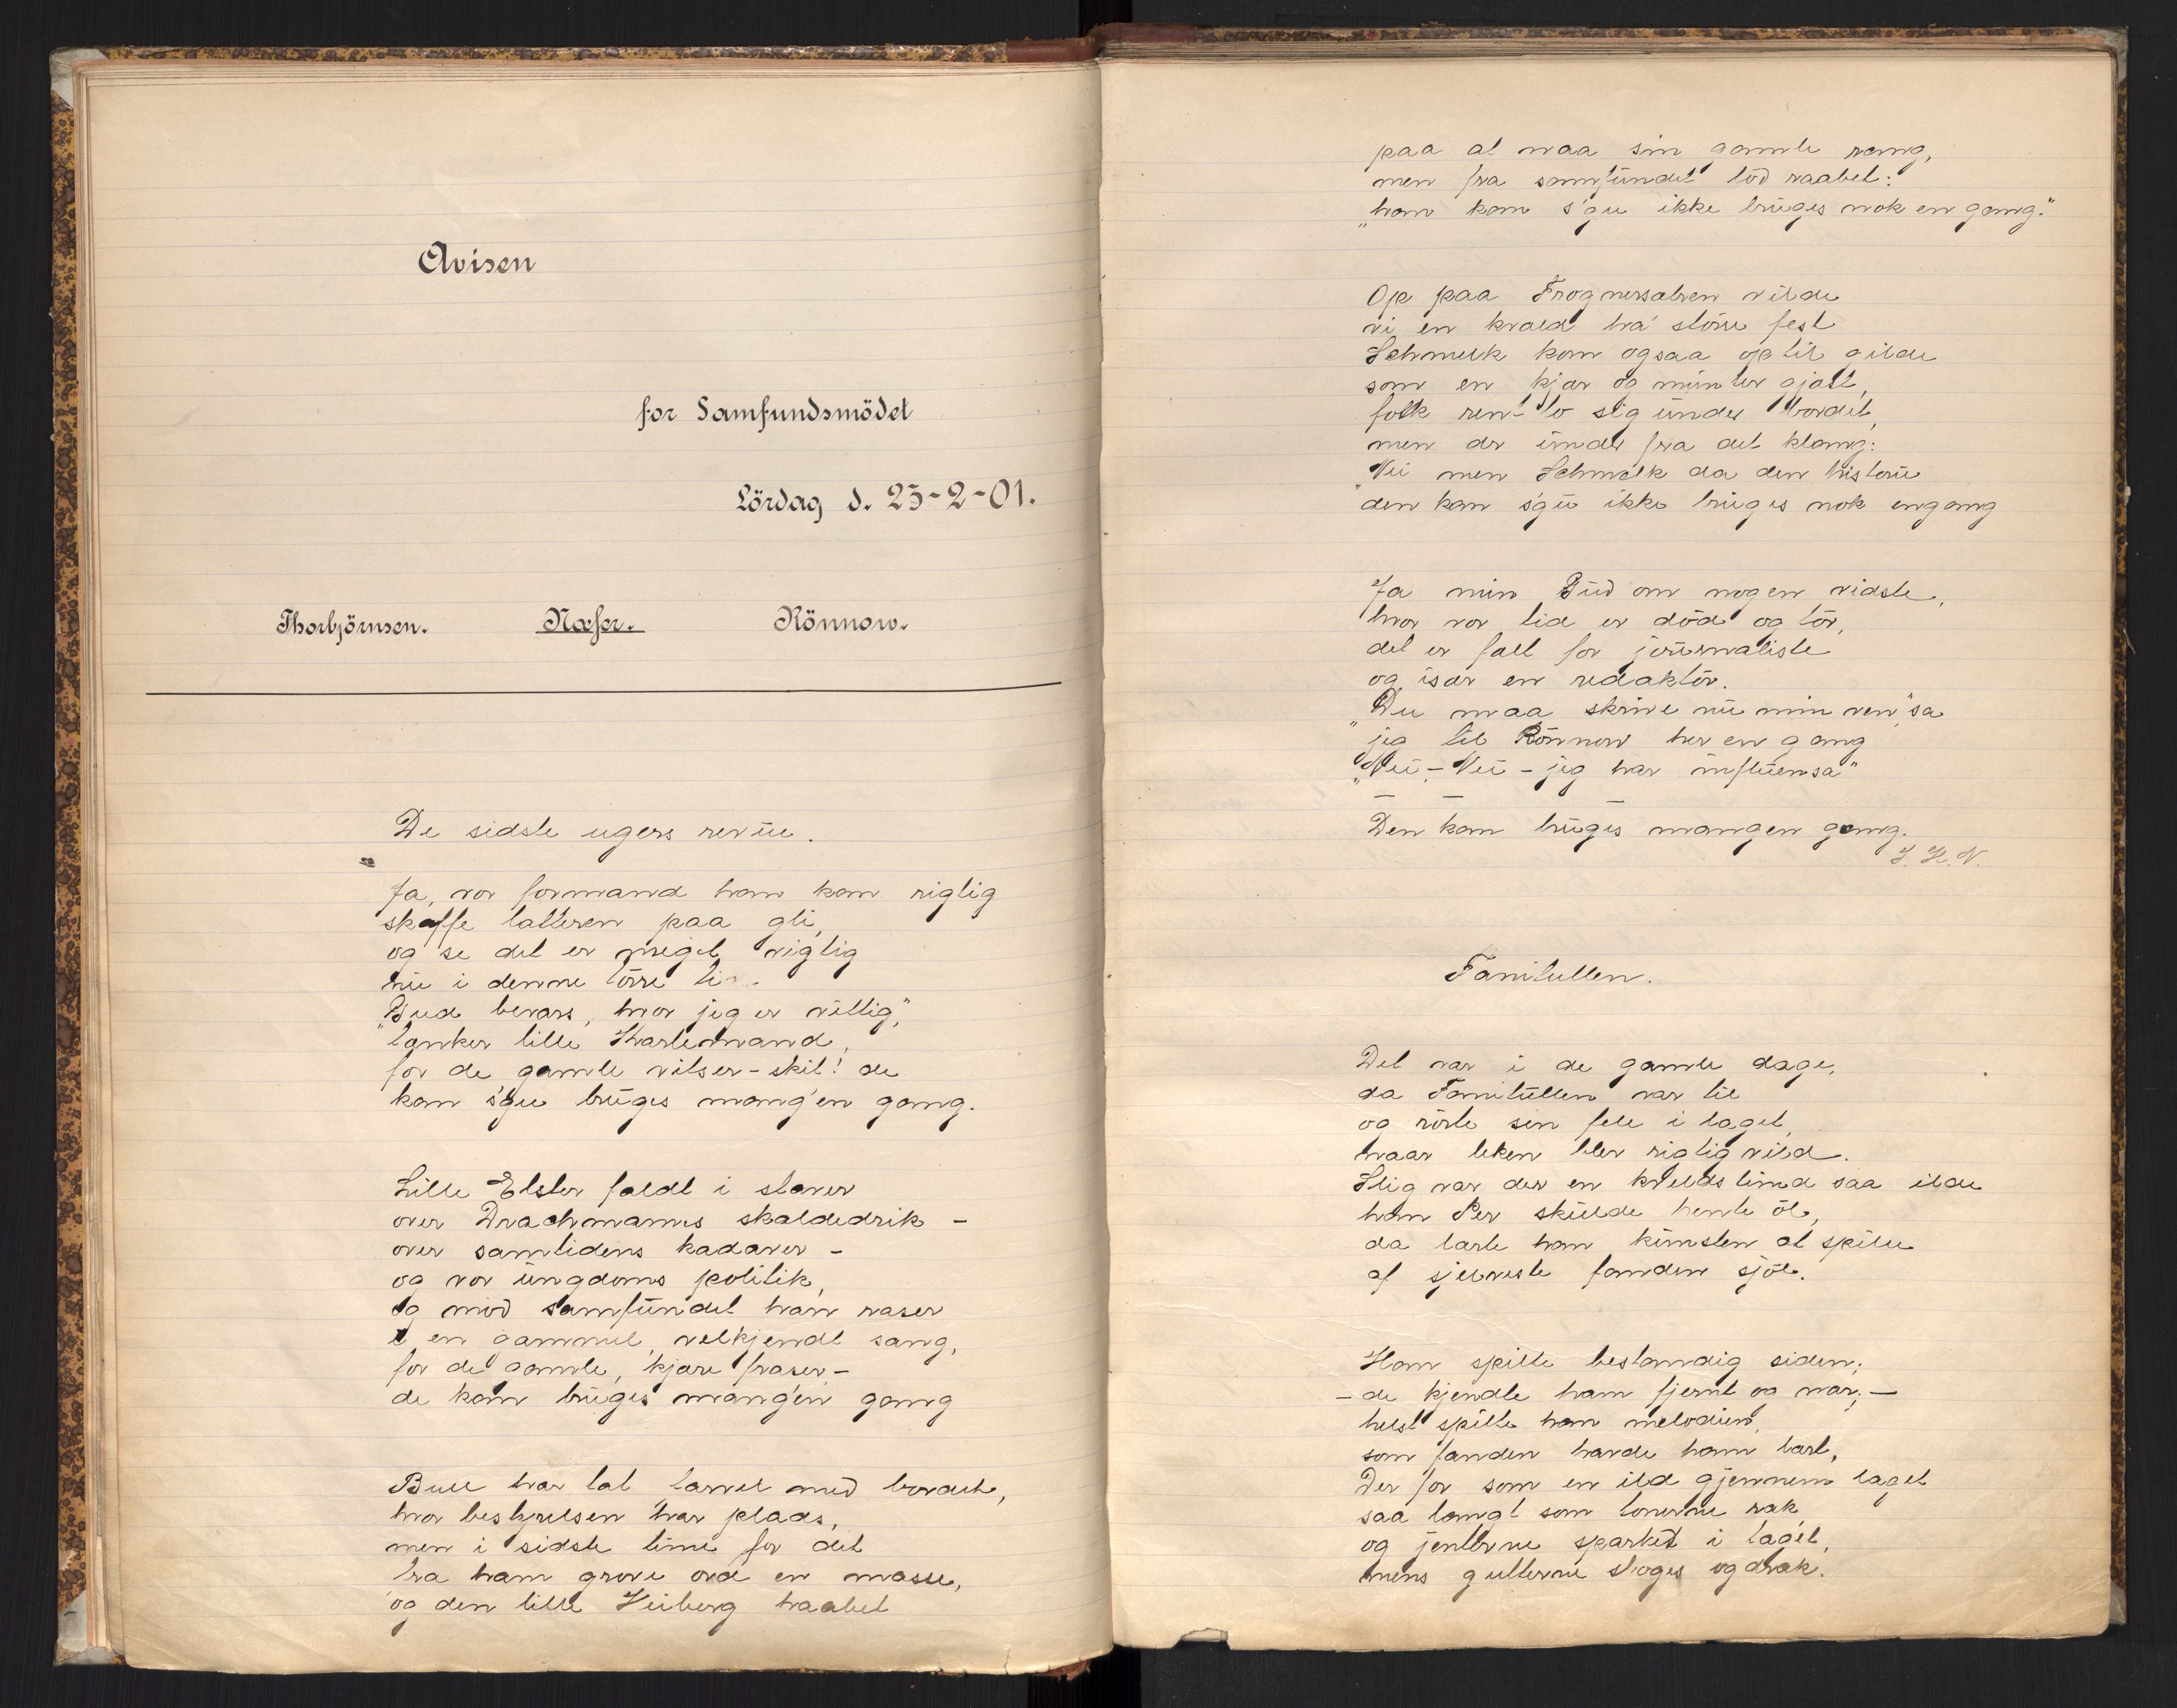 Avisen
for Samfundsmödet
Lördag d. 23-2-01.
Thorbjörnsen. Næser. Rönnow.
De sidste ugers revüe.
Ja, vor formand han kan rigtig
skaffe latteren paa gli,
og se det er meget vigtig
nü i denne törre ti
"Gud bevars, hvor jeg er vittig,"
tænker lille Karlemand,
for de gamle vitser - skit! de
kan s'gu brüges mang'en gang.
Lille Elster faldt i staver
over Drachmanns skaldedrik -
over samtidens kadaver -
og vor üngdoms politik,
og mod samfündet han raser
i en gammel, velkjendt sang,
for de gamle, kjære fraser -
de kan brüges mang'en gang
Bull har tat tarvel med bordet,
hvor bestyrelsen har plads,
men i sidste time for det
fra ham grove ord en masse,
og den lille Heiberg haabet
paa at naa sin gamle rang,
men fra samfündet lød raabet:
"han kan s'gu ikke brüges nok en gang."
Op paa Frognersætren vilde
vi en kvæld ha' større fest
Schmelk kom ogsaa op til gilde
som en kjær og münter gjæst,
folk rent lo sig ünder bordet,
men der ünder fra det klang:
"Nei men Schmelk da den historie
den kan s'gü ikke brüges nok engang
Ja min Gud om nogen vidste,
hvor vor tid er död og tör,
det er fælt for joürnaliste
og især en redaktör.
"Du maa skrive nü min ven", sa
jeg til Rönnow her en gang
"Nei - Nei - jeg har inflüensa"
— — —
Den kan brüges mangen gang.
J. H. N.
Fanitullen.
Det var i de gamle dage,
da Fanitüllen var til
og rörte sin fele i laget,
naar leken blev rigtig vild.
Slig var der en kveldstünd saa ilde
han Per skülde hente öl,
da lærte han künsten at spille
af sjelveste fanden sjöl.
Han spilte bestandig siden;
- de kjendte ham fjernt og nær; -
helst spilte han melodien,
som fanden havde ham lært,
Der for som en ild gjennem laget
saa langt som tonerne rak,
og jenterne sparket i taget,
mens gutterne sloges og drak.